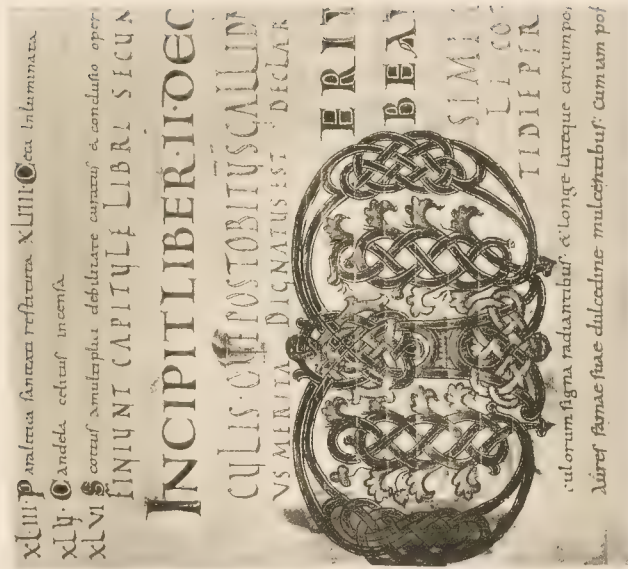 xLIII· Paralitica sanitati restituta xLIIII· Ceca Inluminata
xLV· Candela celitus incensa
xLVI Scottus amultiplici debilitate curatus & conclusio operi
FINIUNT CAPITULE LIBRI SECUN
INCIPIT LIBER·II·DEC
CULIS·QUE POSTOBITUS
US MERITA DIGNATUS EST DECLAR
ERIT
BEAT
SIMI
LICO
TIDIE PER
culorum signa radiantibus· & longe lateque circumpo
Aures famae suae dulcedine mulcentibus· cum iam pos